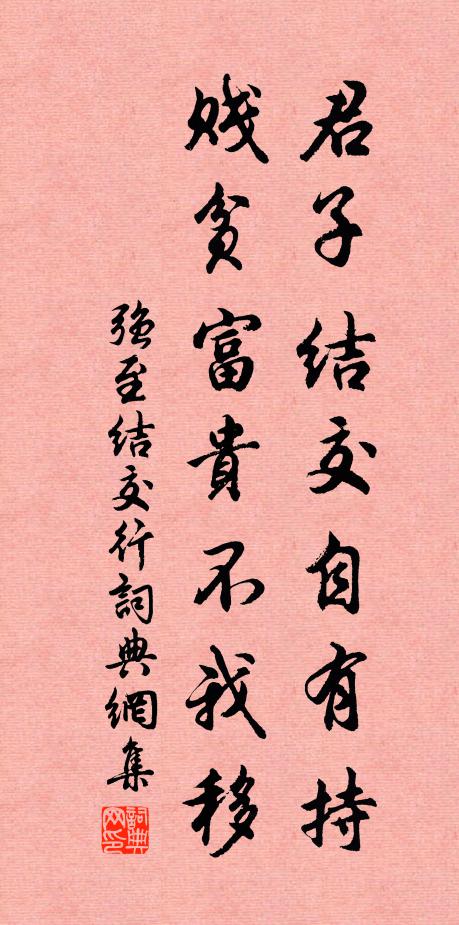 君子结交自有持
贱贫富貴不我移
强至结交行詞典網集
詞典网印